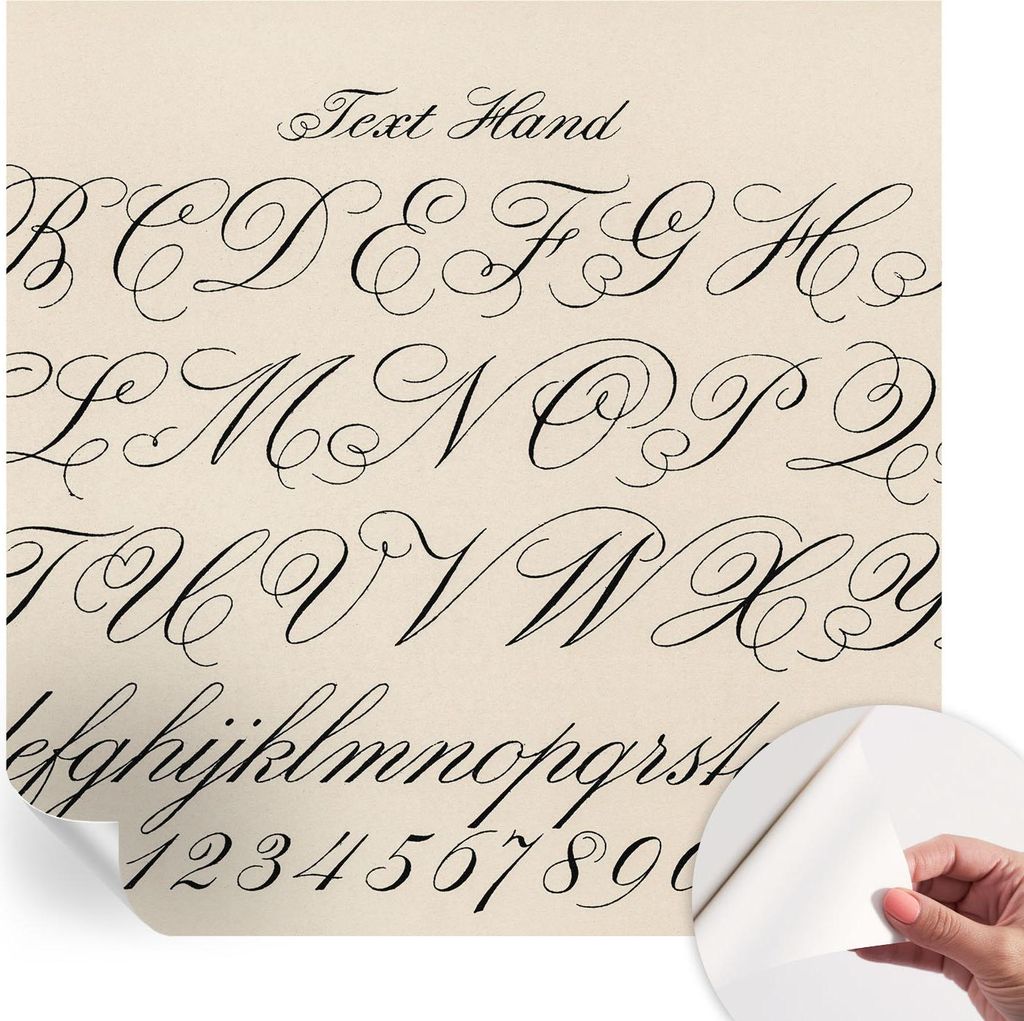 Text Hand
B C D E F G H
L M N O P Q
T U V W X Y
efghijklmnopqrst
1 2 3 4 5 6 7 8 9 0